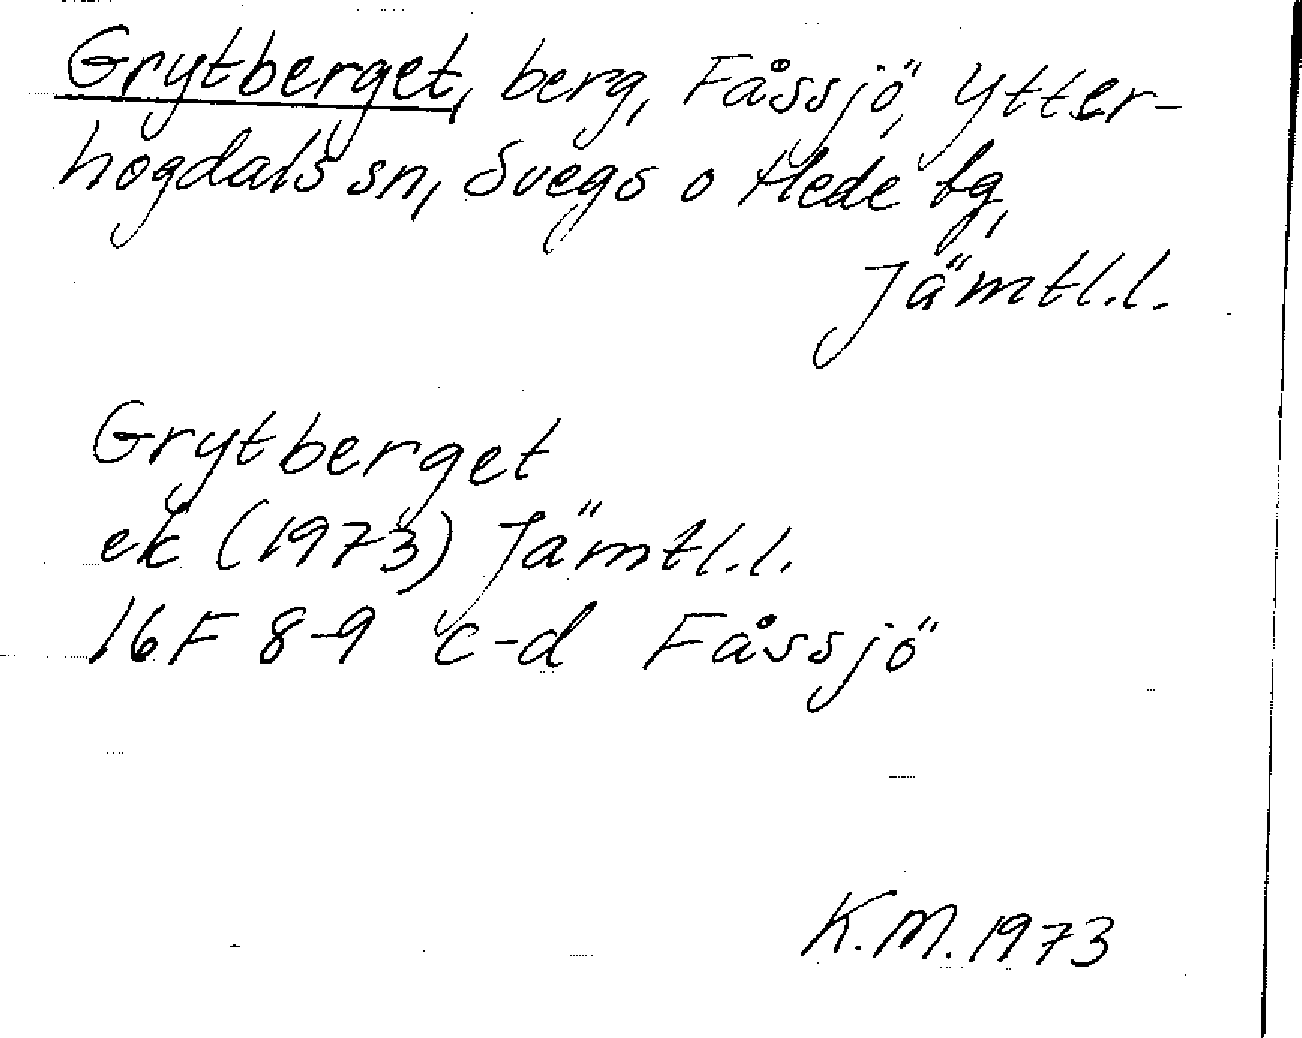 Grytberget, berg, Fåssjö, Ytter-
hogdals sn, Svegs o Hede tg,
Jämtl.l.
Grytberget
ek (1973) Jämtl.l.
16F 8-9 c-d Fåssjö
K.M. 1973